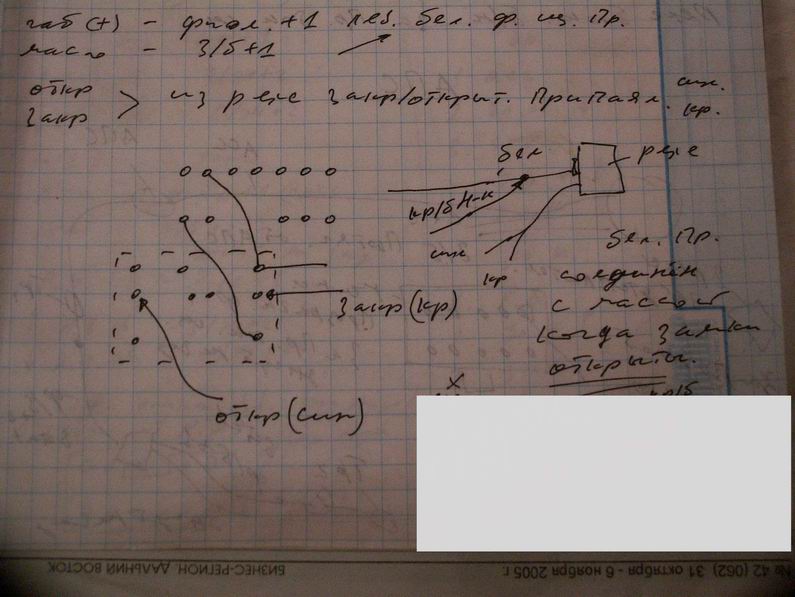 габ (+) - фиол. +1 лев. бел. ф. щ. Пр.
масс - З/б+1
откр
Закр > из реле закр/открыт. Припаял. син.
кр.
бел
реле
кр/б Н-К
син
кр
Закр (кр)
откр (син)
бел. Пр.
соединён
с массой
когда замки
открыты.
х
кр/б
БИЗНЕС-РЕГИОН. ДАЛЬНИЙ ВОСТОК
№ 42 (062) 31 октября - 6 ноября 2005 г.